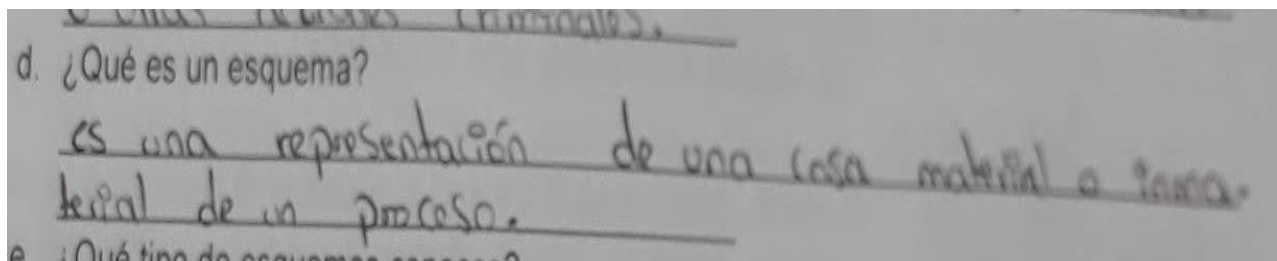 criminales.
d. ¿Qué es un esquema?
es una representación de una cosa material o inma-
terial de un proceso.
e. ¿Qué tipo de esquemas conoces?